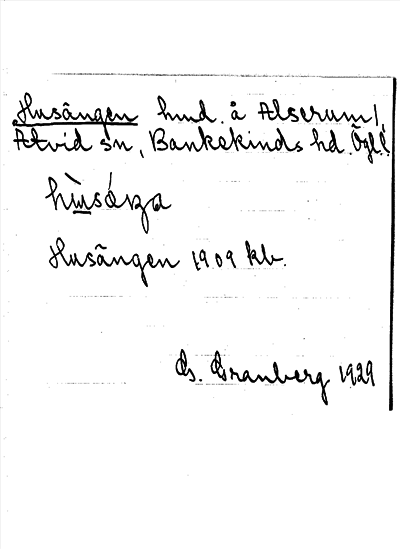 Husängen hmd. å Alserum 1,
Åtvid sn, Bankekinds hd. Ögll.
Husängen 1909 kb.
G. Granberg 1929